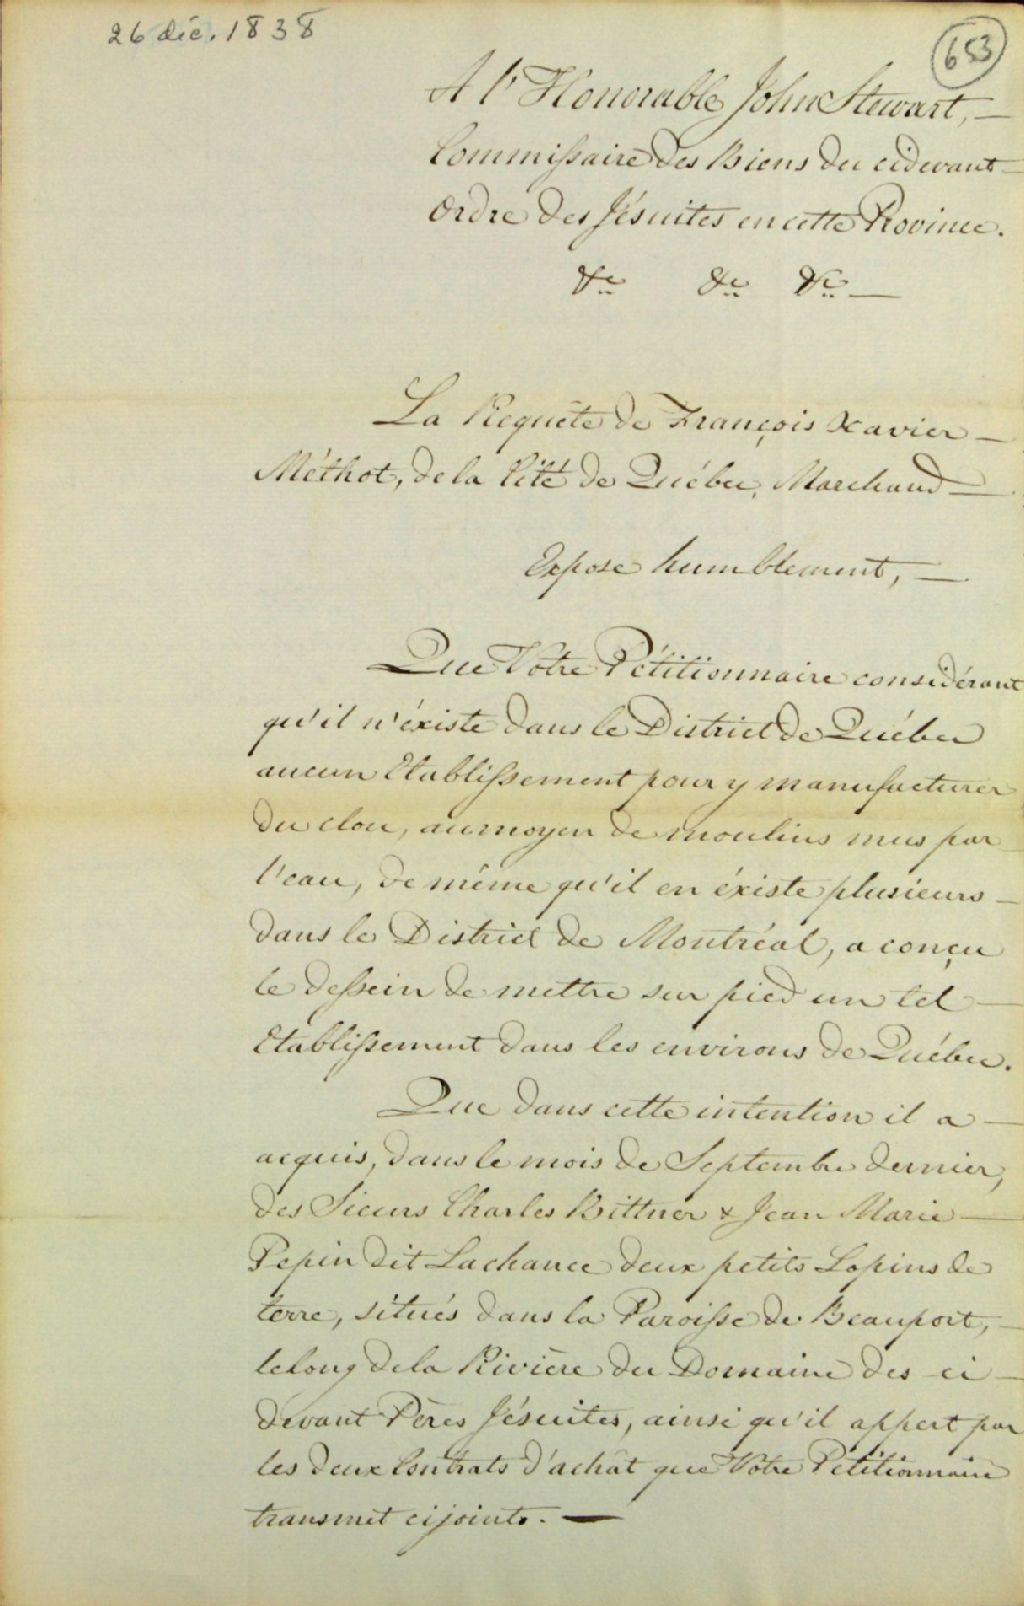 26 déc. 1838
653
A l'Honorable John Stewart, —
Commissaire des Biens du cidevant —
Ordre des Jésuites en cette Province.
&c &c &c —
La Requête de François Xavier —
Méthot, de la Cité de Québec, Marchand —
Expose humblement, —
Que Votre Pétitionnaire considérant
qu'il n'éxiste dans le District de Québec
aucun Etablissement pour y manufacturer
du clou, au moyen de moulins mus par
l'eau, de même qu'il en éxiste plusieurs —
dans le District de Montréal, a conçu
le dessein de mettre sur pied un tel —
Etablissement dans les environs de Québec.
Que dans cette intention il a —
acquis, dans le mois de Septembre dernier,
des Sieurs Charles Bittner & Jean Marie —
Pepin dit Lachance deux petits Lopins de
terre, situés dans la Paroisse de Beauport, —
le long de la Rivière du Domaine des ci —
devant Pères Jésuites, ainsi qu'il appert par
les deux Contrats d'achât que Votre Pétitionnaire
transmet cijoints. —